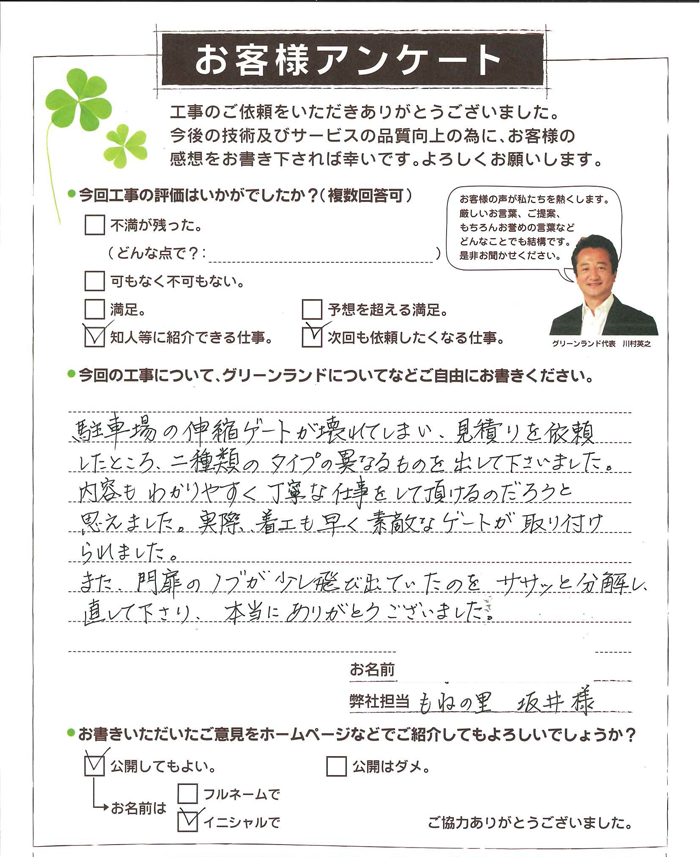 お客様アンケート
工事のご依頼をいただきありがとうございました。
今後の技術及びサービスの品質向上の為に、お客様の
感想をお書き下されば幸いです。よろしくお願いします。
今回工事の評価はいかがでしたか？（複数回答可）
不満が残った。
（どんな点で？：　）
可もなく不可もない。
満足。
予想を超える満足。
知人等に紹介できる仕事。
次回も依頼したくなる仕事。
お客様の声が私たちを熱くします。
厳しいお言葉、ご提案、
もちろんお誉めの言葉など
どんなことでも結構です。
是非お聞かせください。
グリーンランド代表　川村英之
今回の工事について、グリーンランドについてなどご自由にお書きください。
駐車場の伸縮ゲートが壊れてしまい、見積りを依頼
したところ、二種類のタイプの異なるものを出して下さいました。
内容も わかりやすく 丁寧な仕事をして頂けるのだろうと
思えました。実際、着工も早く 素敵なゲートが 取り付け
られました。
また、門扉のノブが少し飛び出ていたのを ササッと分解し、
直して下さり、 本当に ありがとうございました。
お名前
弊社担当 もねの里　坂井様
お書きいただいたご意見をホームページなどでご紹介してもよろしいでしょうか？
公開してもよい。
公開はダメ。
お名前は
フルネームで
イニシャルで
ご協力ありがとうございました。